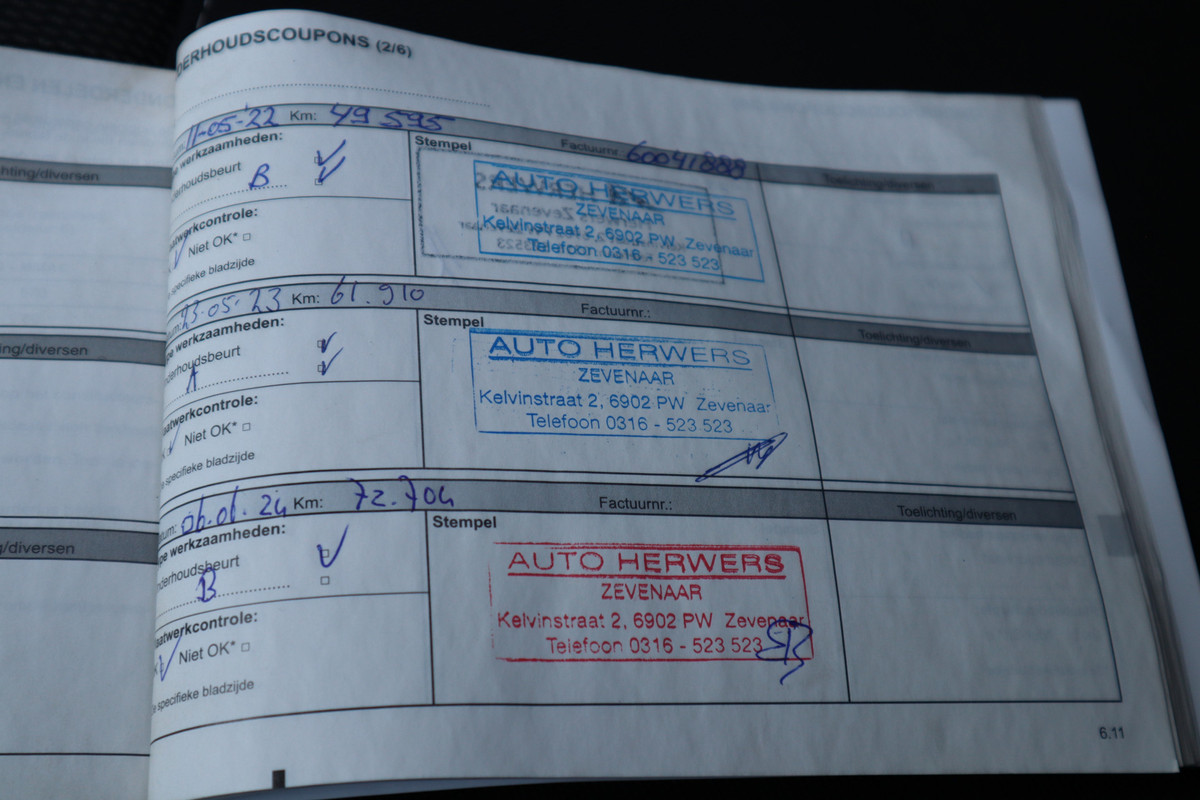 DERHOUDSCOUPONS (2/6)
11-05-'22 Km: 49 595
Factuurnr. 60041888
werkzaamheden:
Stempel
derhoudsbeurt
B
AUTO HERWERS
ZEVENAAR
Kelvinstraat 2, 6902 PW Zevenaar
Telefoon 0316 - 523 523
atwerkcontrole:
Niet OK*
specifieke bladzijde
hting/diversen
23-05-'23 Km: 61.910
Factuurnr.:
Toelichting/diversen
pe werkzaamheden:
Stempel
derhoudsbeurt
A
AUTO HERWERS
ZEVENAAR
Kelvinstraat 2, 6902 PW Zevenaar
Telefoon 0316 - 523 523
atwerkcontrole:
Niet OK*
specifieke bladzijde
ng/diversen
tum: 06.01.24 Km: 72.704
Factuurnr.:
Toelichting/diversen
pe werkzaamheden:
Stempel
derhoudsbeurt
B
AUTO HERWERS
ZEVENAAR
Kelvinstraat 2, 6902 PW Zevenaar
Telefoon 0316 - 523 523
aatwerkcontrole:
Niet OK*
specifieke bladzijde
g/diversen
6.11